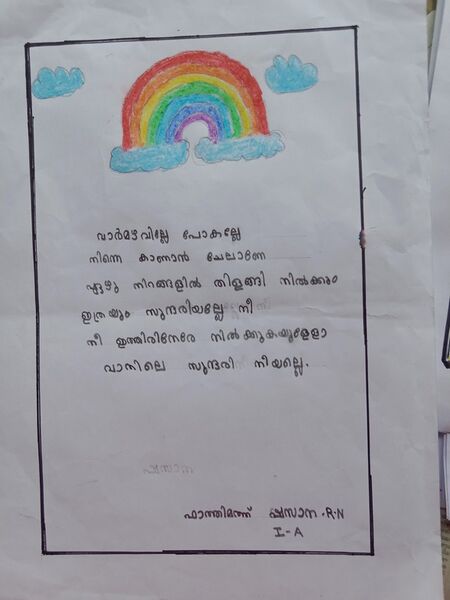 വാർമഴവില്ലേ പോകല്ലേ
നിന്നെ കാണാൻ ചേലാണേ
ഏഴു നിറങ്ങളിൽ തിളങ്ങി നിൽക്കും
ഇത്രയും സുന്ദരിയല്ലേ നീ
നീ ഇത്തിരിനേരേ നിൽക്കുകയുള്ളോ
വാനിലെ സുന്ദരി നീയല്ലെ.
ഫാത്തിമത്ത് ഷ്ബസാന .R.N
I-A